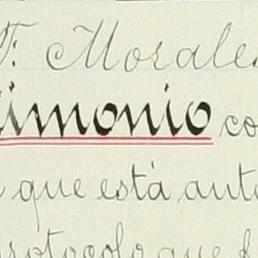 F. Morales
timonio co
que está ante
protocolo que f